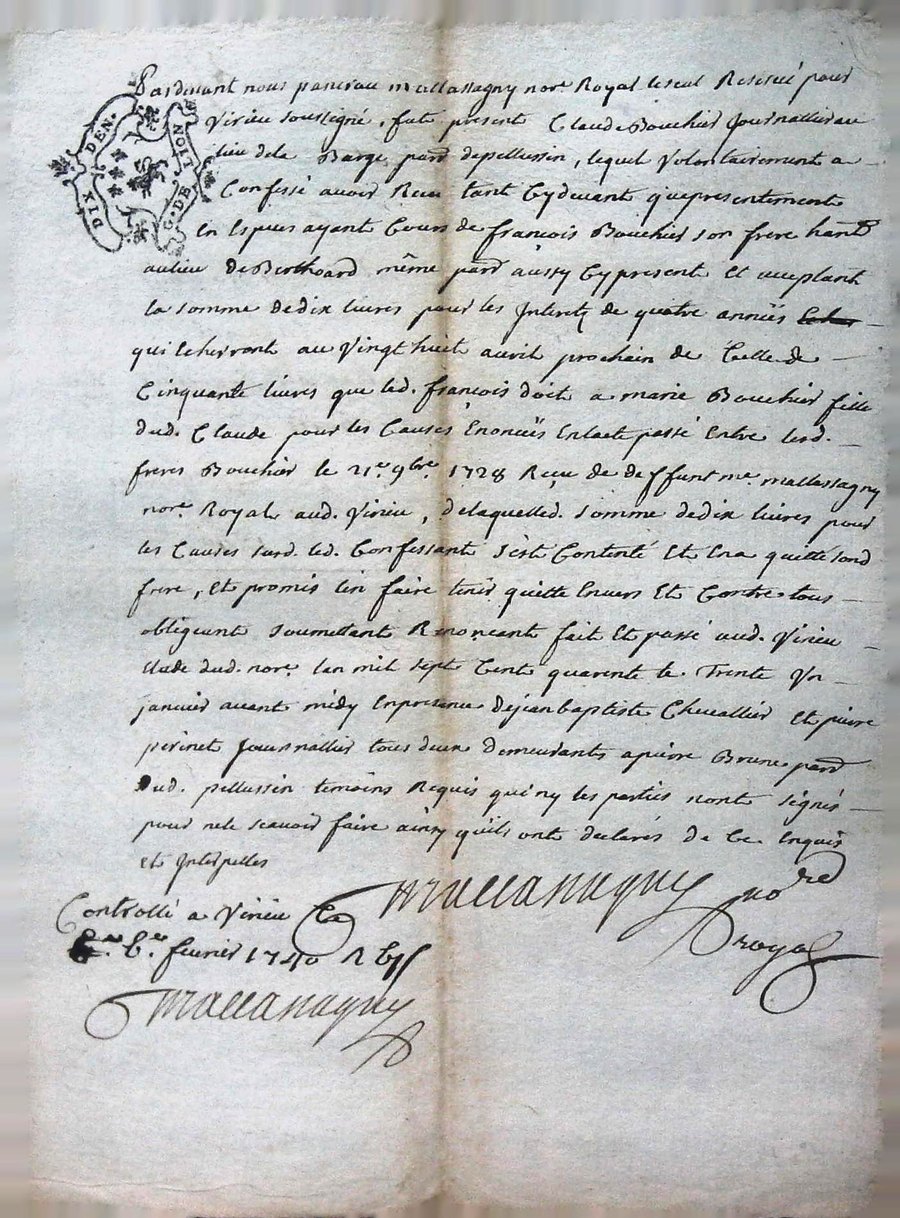 Pardevant nous pancrau mallassagny nore. Royal lescul Reservé pour
Virieu soussigné, fut present Claude Bouchier Journallier au
DIX DEN.
G. DE NOIT
lieu dela Barge parr depellussin, lequel Volontairement a
Confessé avoir Receu tant Cydevant quepresentement
En Especes ayant Cours de françois Bouchier son frere hant
aulieu de Berthoard même parr aussy Cypresent Et acceptant
la somme dedix livres pour les Interetz de quatre années
qui Echerront au Vingt huit avril prochain de Celle de
Cinquante livres que led. françois doit a marie Bouchier fille
dud. Claude pour les Causes Enonceës Enlacte passé Entre lesd.
freres Bouchier le 21e. 9bre. 1728 Reçu de deffunt me. mallassagny
nore. Royal aud. Virieu, delaquelled. somme dedix livres pour
les Causes susd. led. Confessant s'est Contenté Et Ena quitté sond
frere, Et promis l'en faire tenir quitte Envers Et Contre tous
obligeant soumettant Renonceant fait Et passé aud. Virieu
Etude dud. nore. Lan mil sept Cent quarente le Trente Un
janvier avant midy Enpresence dejean baptiste Chevallier Et pierre
perinet Journallier tous deux demeurants a pierre Brune parr
dud. pellussin temoins Requis quiny les parties nont signés
pour nele scavoir faire ainsy quils ont declarés de Ce Enquis
Et Interpelles
Mallassagny nore
royal
Controllé a Virieu Le
fevrier 1740 R
Mallassagny